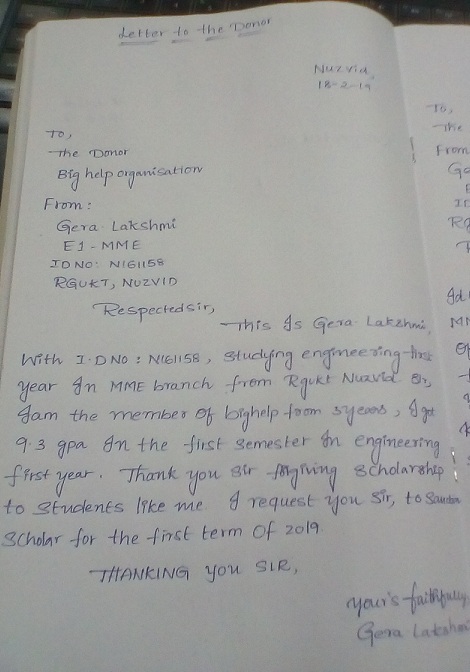 Letter to the Donor
Nuzvid,
18-2-19
To,
The Donor
Big help organisation
From:
Gera Lakshmi
E1 - MME
ID NO: N161158
RGUKT, NUZVID
Respected sir,
This Is Gera Lakshmi,
With I.D NO : N161158, studying engineering first
year In MME branch from Rgukt Nuzvid Sir,
I am the member of bighelp from 5years, I got
9.3 gpa In the first semester In engineering
first year. Thank you Sir forgiving Scholarship
to Students like me I request you Sir, to
Scholar for the first term Of 2019.
THANKING you SIR,
your's faithfully
Gera Lakshmi
To,
The
From